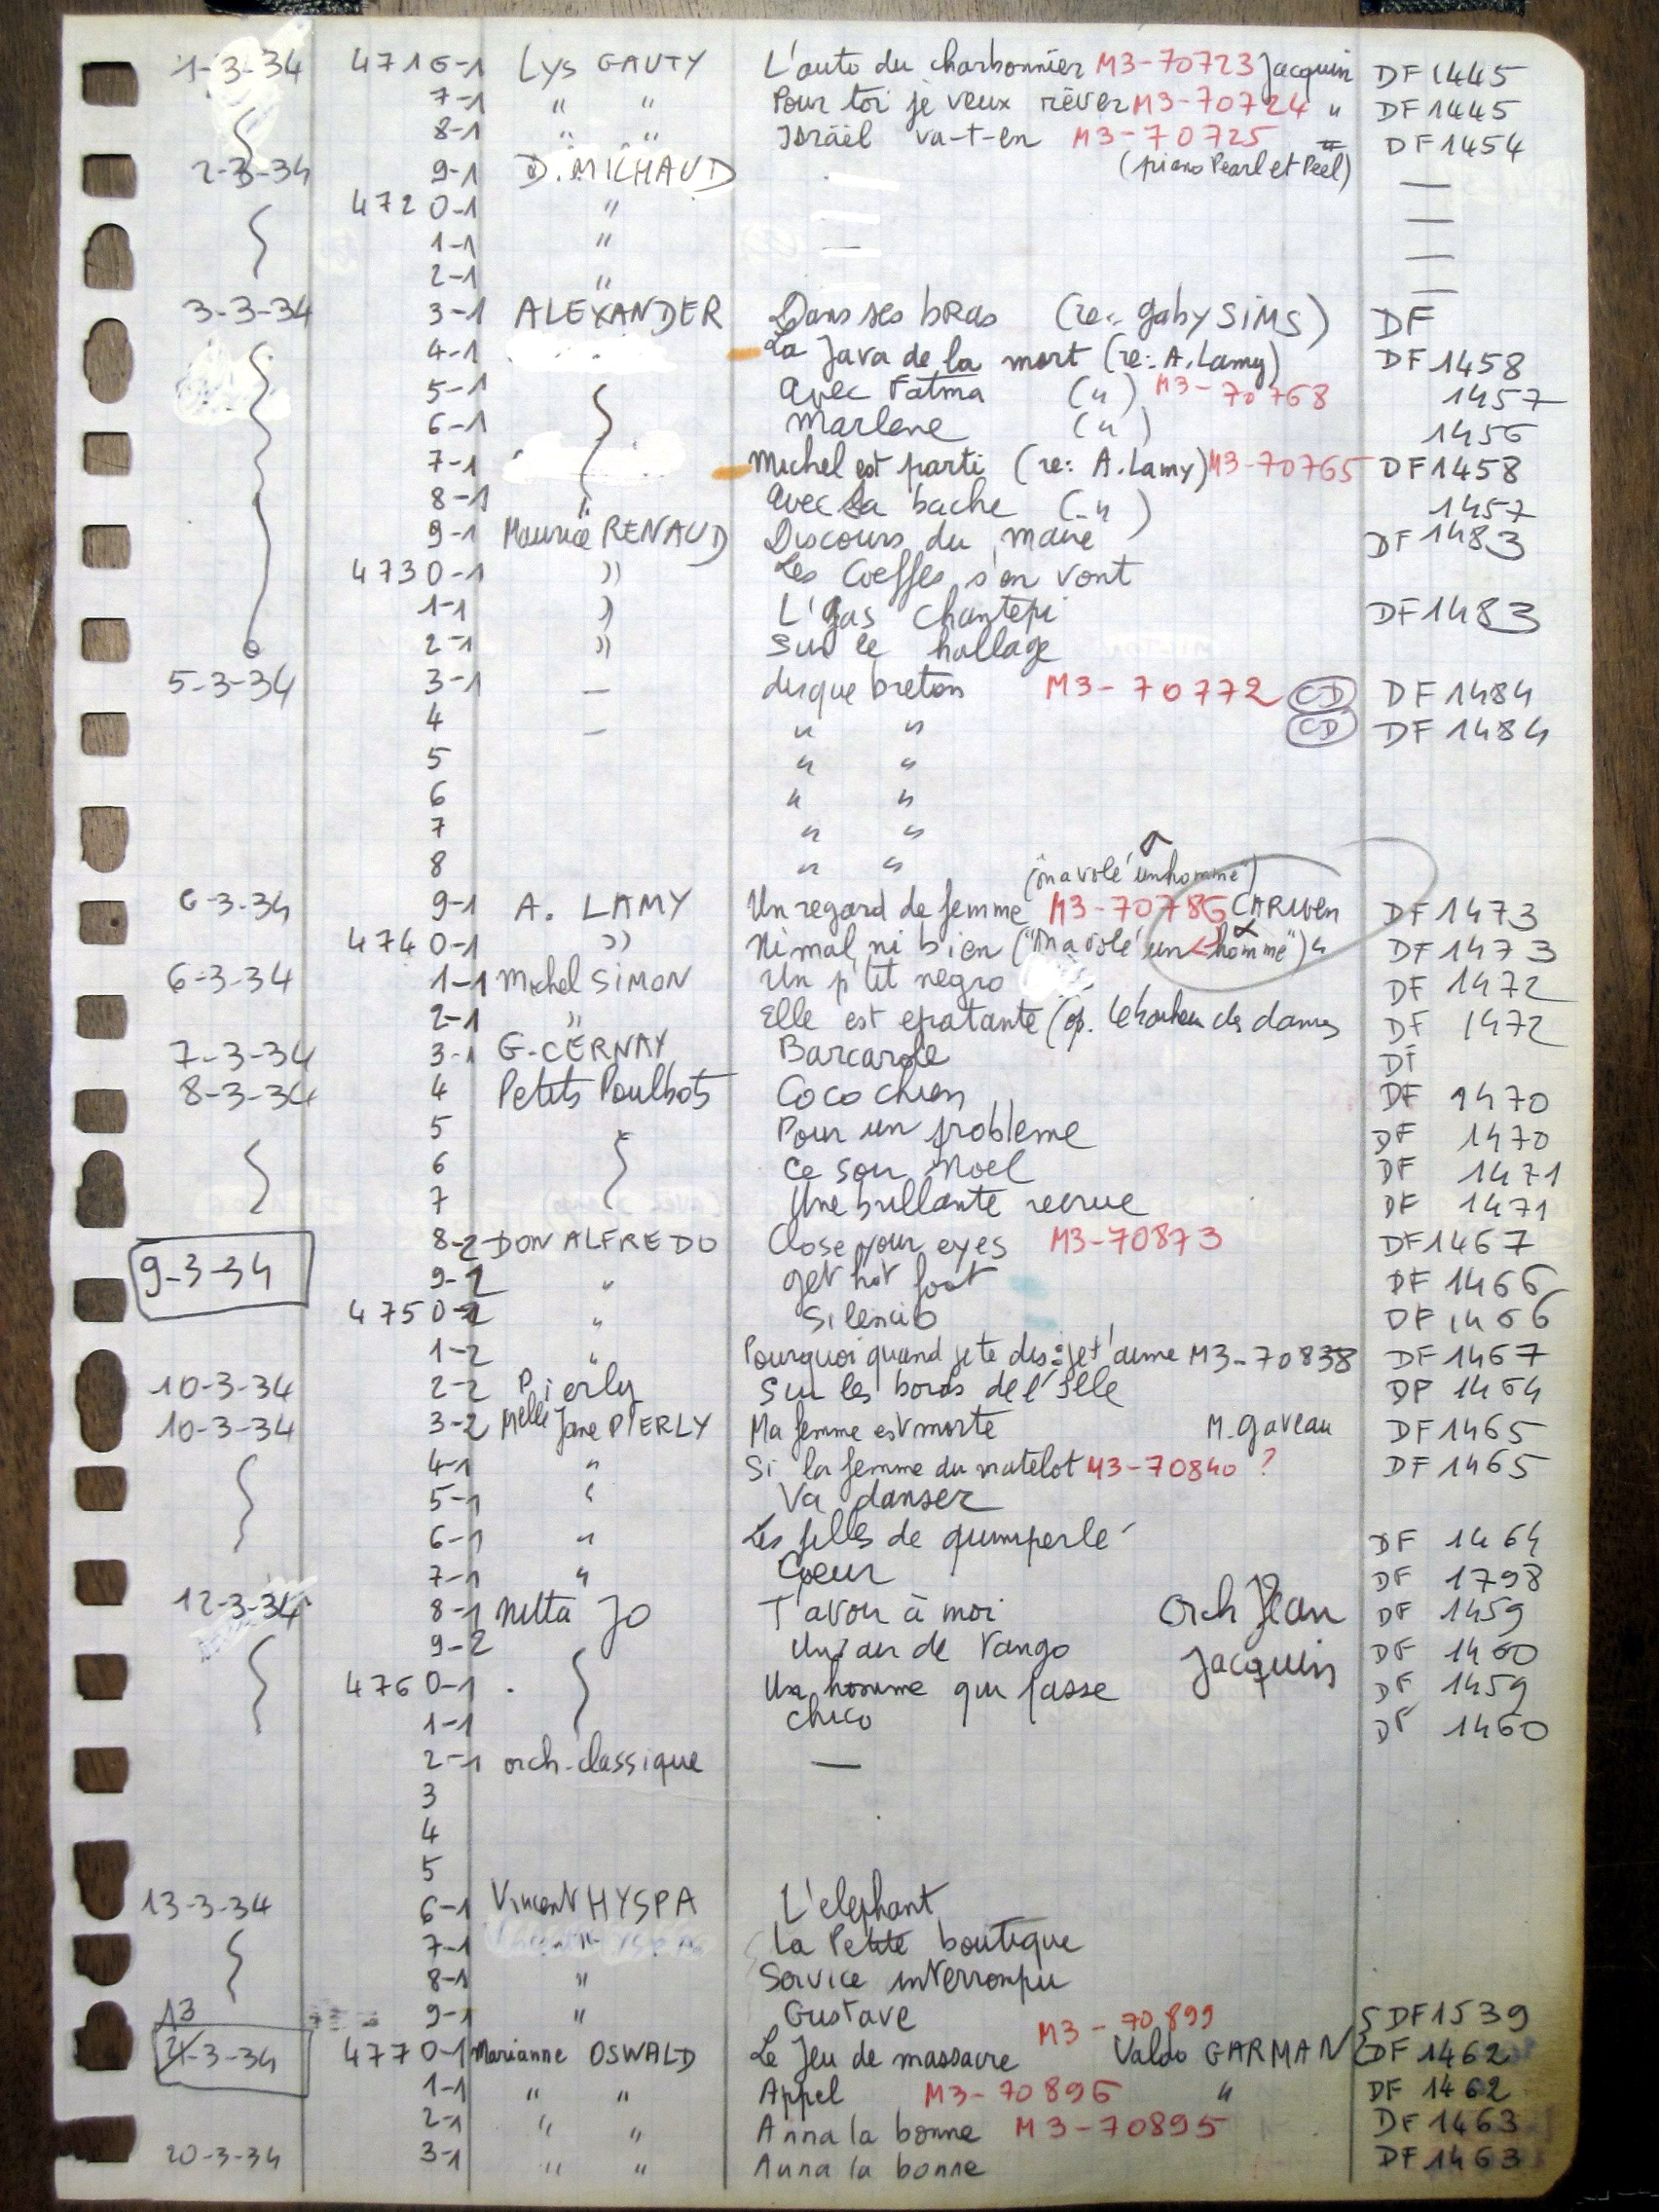 1-3-34 4716-1 Lys GAUTY L'auto du charbonnier M3-70723 Jacquin DF1445
7-1 " " Pour toi je veux rêver M3-70724 " DF1445
8-1 " " Israël va-t-en M3-70725 " DF1454
2-3-34 9-1 D. MICHAUD — (piano Pearl et Peel) —
4720-1 " — —
1-1 " — —
2-1 " —
3-3-34 3-1 ALEXANDER Dans ses bras (re: gaby SIMS) DF
4-1 La Java de la mort (re: A. Lamy) DF1458
5-1 Avec Fatma (") M3-70768 1457
6-1 Marlene (") 1456
7-1 Michel est parti (re: A. Lamy) M3-70765 DF1458
8-1 " avec sa bache (") 1457
9-1 Maurice RENAUD Discours du maire DF1483
4730-1 " Les Coeffes s'en vont
1-1 " L'gas Chantepi DF1483
2-1 " Sur le hallage
5-3-34 3-1 — disque breton M3-70772 CD DF1484
4 — " " CD DF1484
5 " "
6 " "
7 " "
8 " "
(on a volé un homme")
6-3-34 9-1 A. LAMY Un regard de femme M3-70786 CARIVEN DF1473
4740-1 " Ni mal, ni bien ("on a volé un homme") " DF1473
6-3-34 1-1 Michel SIMON Un p'tit negro DF 1472
2-1 " Elle est epatante (op. le bonheur des dames DF 1472
7-3-34 3-1 G. CERNAY Barcarole DF
8-3-34 4 Petits Poulbots Coco chien DF 1470
5 Pour un probleme DF 1470
6 Ce soir Noel DF 1471
7 Une brillante recrue DF 1471
9-3-34 8-2 DON ALFREDO Close your eyes M3-70873 DF1467
9-2 " get hot foot DF 1466
4750-2 " Silencio DF 1466
1-2 " Pourquoi quand je te dis: je t'aime M3-70838 DF 1467
10-3-34 2-2 Pierly Sur les bords de l'Ille DF 1464
10-3-34 3-2 Melle Jane PIERLY Ma femme est morte M. gaveau DF1465
4-1 " Si la femme du matelot M3-70840 ? DF 1465
5-1 " Va danser
6-1 " Les filles de quimperlé DF 1464
7-1 " Coeur DF 1798
12-3-34 8-1 Nitta Jo T'avoir à moi Orch Jean DF 1459
9-2 Un air de Tango Jacquin DF 1460
4760-1 Un homme qui passe DF 1459
1-1 Chico DF 1460
2-1 orch-classique —
3
4
5
13-3-34 6-1 Vincent HYSPA L'elephant
7-1 " La Petite boutique
8-1 " Service interrompu
13 9-1 " Gustave M3-70899 DF1539
-3-34 4770-1 Marianne OSWALD Le Jeu de massacre Valdo GARMAN DF 1462
1-1 " " Appel M3-70896 " DF 1462
2-1 " " Anna la bonne M3-70895 DF1463
20-3-34 3-1 " " Anna la bonne DF1463